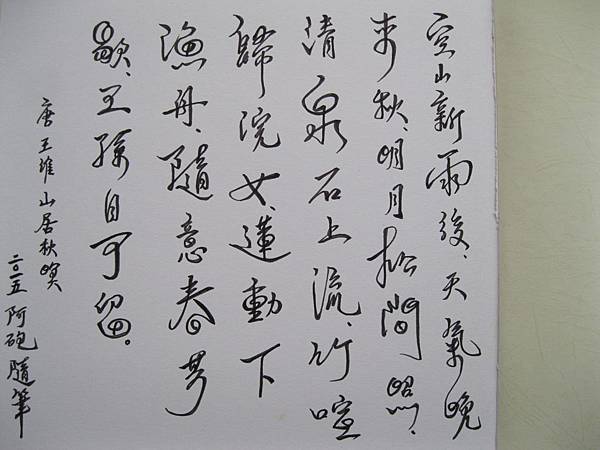 空山新雨後、天氣晚
來秋、明月松間照、
清泉石上流、竹喧
歸浣女、蓮動下
漁舟、隨意春芳
歇、王孫自可留。
唐 王維 山居秋暝
二〇一五 阿砲 隨筆